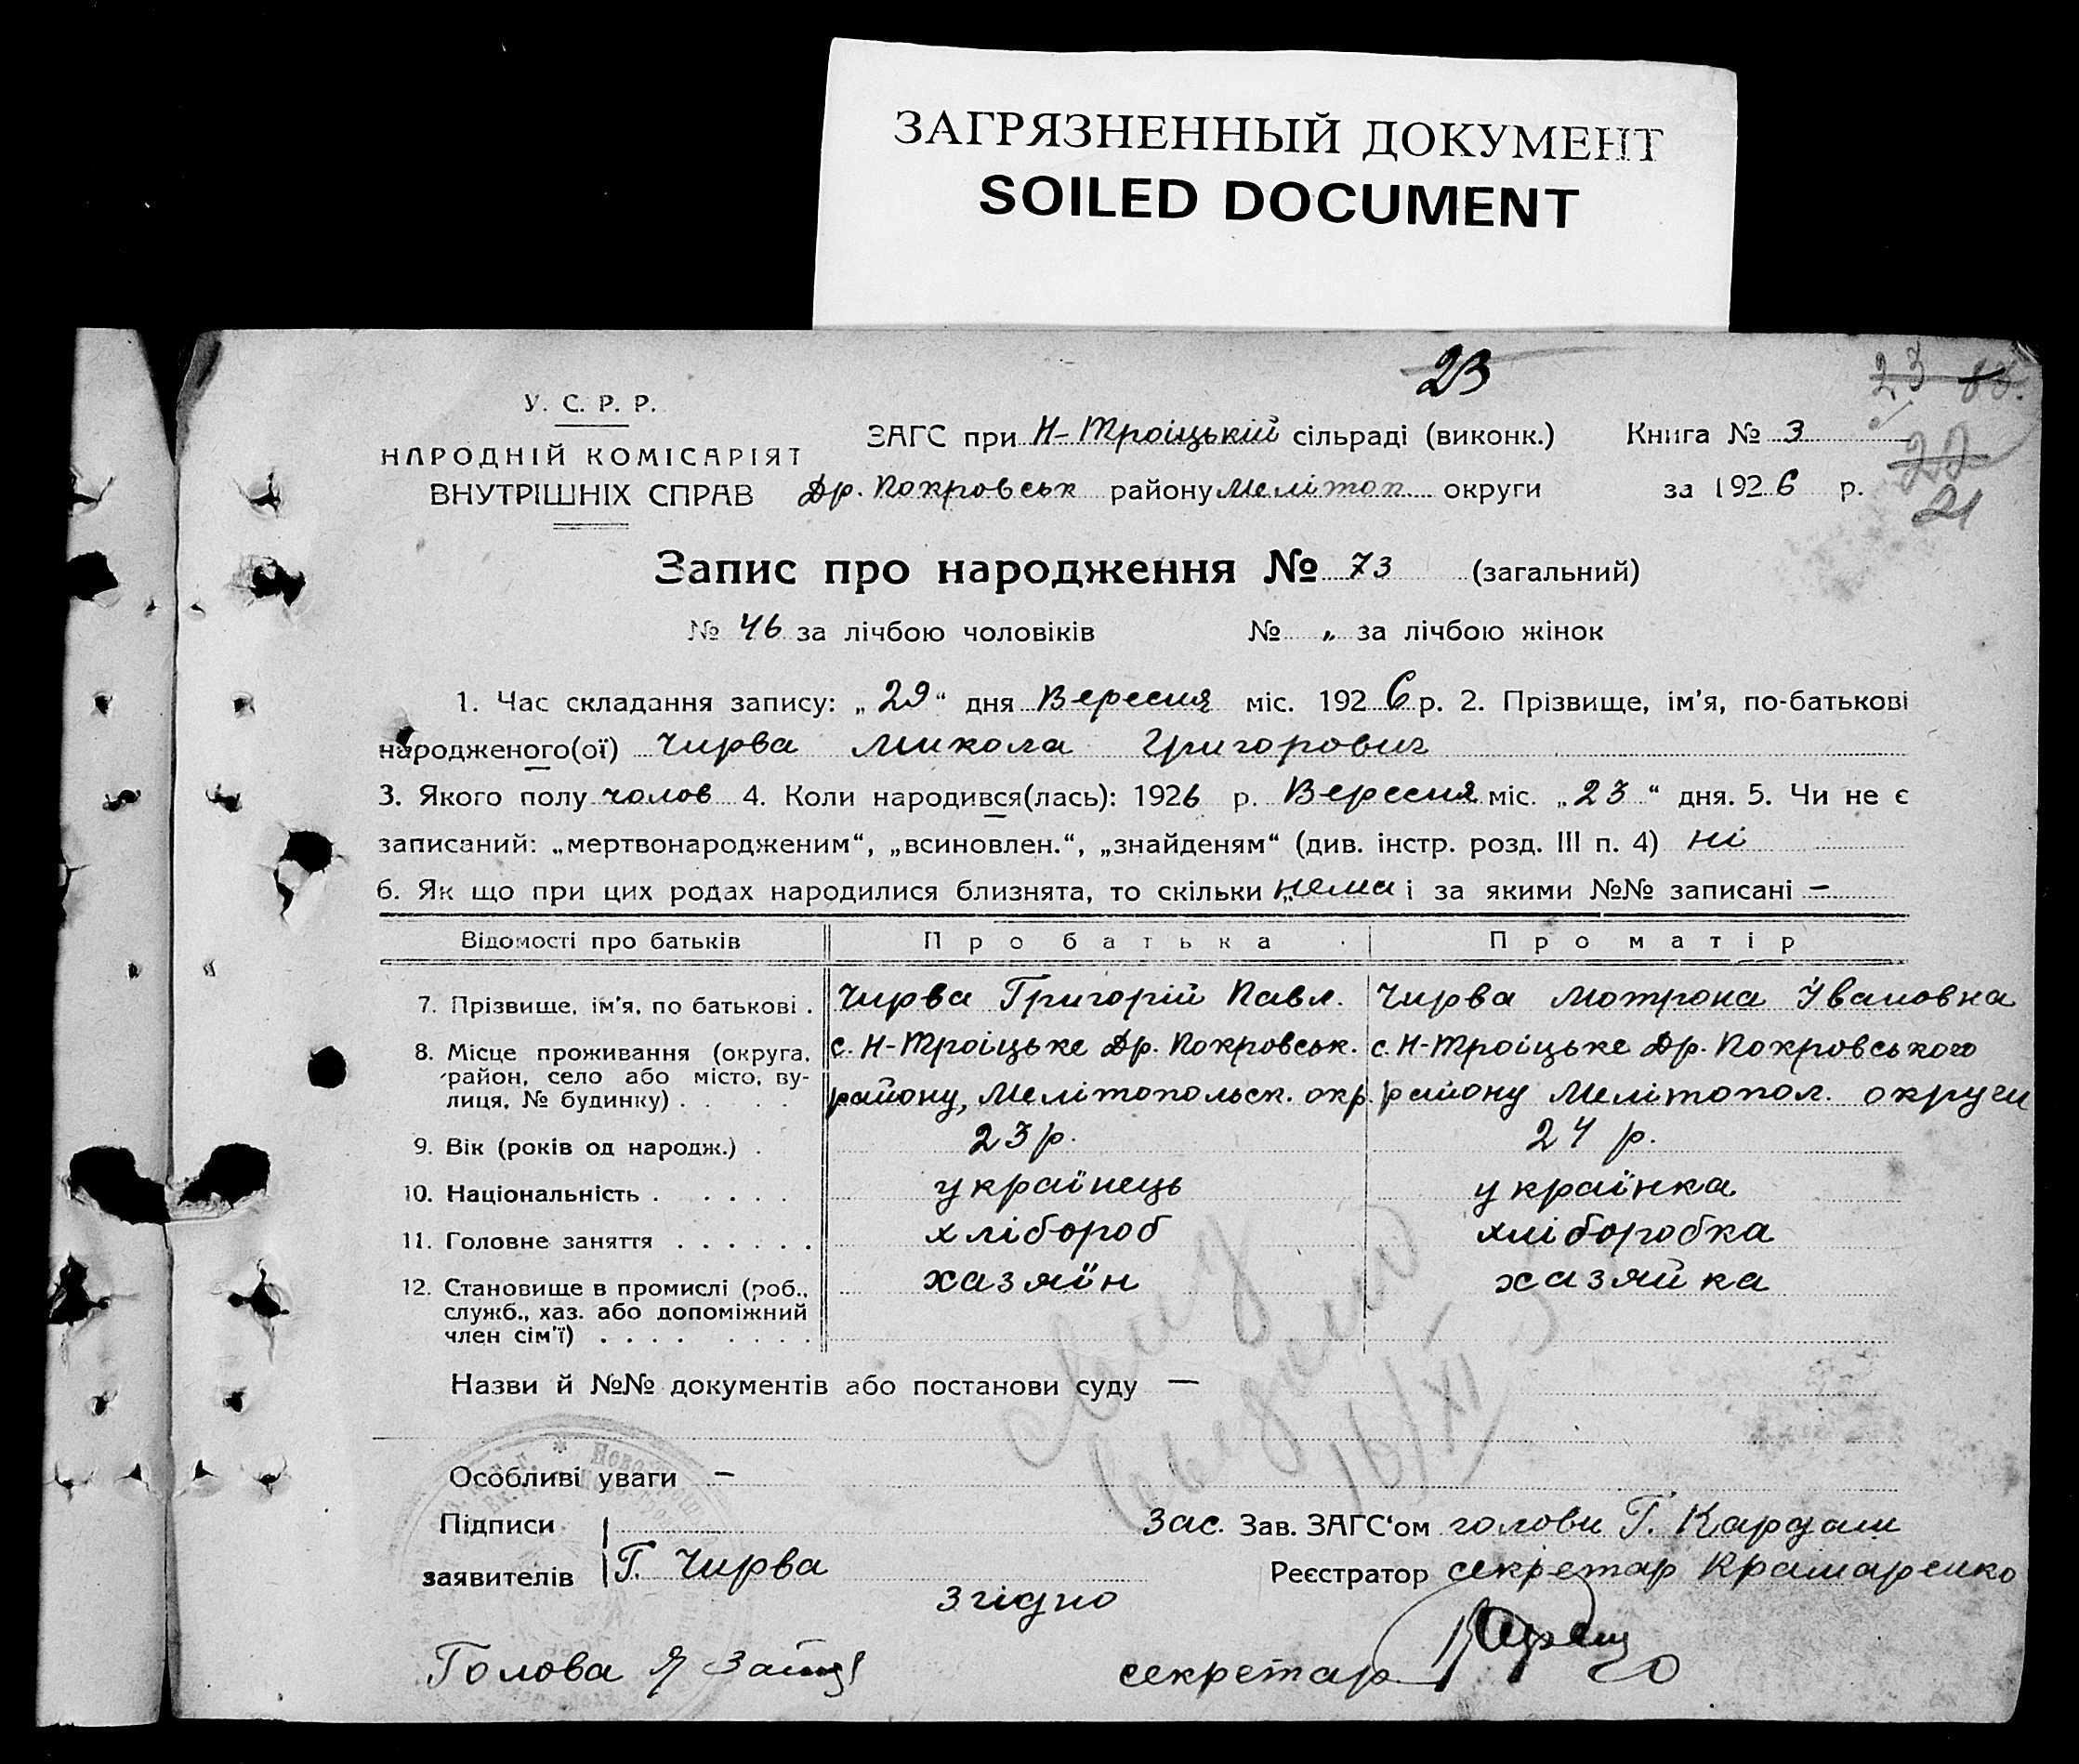 ЗАГРЯЗНЕННЫЙ ДОКУМЕНТ
SOILED DOCUMENT
23
23
22
21
У. С. Р. Р.
НАРОДНІЙ КОМІСАРІЯТ
ВНУТРІШНІХ СПРАВ
ЗАГС при Н-Троіцькій сільраді (виконк.) Книга № 3
Др. Покровськ району Мелітоп. округи за 1926 р.
Запис про народження № 73 (загальний)
№ 46 за лічбою чоловіків № „ за лічбою жінок
1. Час складання запису: „29“ дня Вересня міс. 1926 р. 2. Прізвище, ім'я, по-батькові
народженого(ої) Чирва Микола Григорович
3. Якого полу чолов 4. Коли народився(лась): 1926 р. Вересня міс. „23“ дня. 5. Чи не є
записаний: „мертвонародженим“, „всиновлен.“, „знайденям“ (див. інстр. розд. III п. 4) ні
6. Як що при цих родах народилися близнята, то скільки „нема і за якими №№ записані —
Відомості про батьків Про батька Про матір
7. Прізвище, ім'я, по батькові . Чирва Григорій Павл. Чирва Мотрона Ивановна
8. Місце проживання (округа, с. Н-Троіцьке Др. Покровськ. с. Н-Троіцьке Др. Покровського
район, село або місто, ву-
лиця, № будинку) . . . . району, Мелітопольск. окр. району Мелітопол. округи
9. Вік (років од народж.) . 23 р. 24 р.
10. Національність . . . . . украінець украінка
11. Головне заняття . . . . . . хлібороб хліборобка
12. Становище в промислі (роб., хазяїн хазяйка
служб., хаз. або допоміжний
член сім'ї) . . . . . . . .
Назви й №№ документів або постанови суду —
16/XI
Особливі уваги —
Підписи
заявителів Г. Чирва
Зас. Зав. ЗАГС'ом голови Г. Кардаш
Реєстратор секретар Крамаренко
Згідно
Голова Я Заїц
секретар